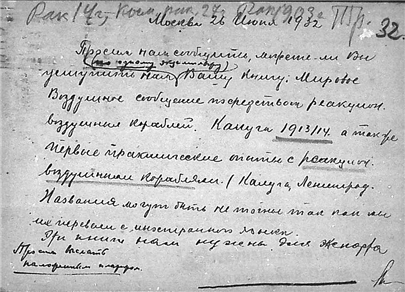 Москва 26 Июня 1932
32.
Просим нам сообщить, можете ли Вы
(по одному экземпляру)
уступить нам Вашу книгу: Мировое
Воздушное сообщение посредством реакцион.
воздушных кораблей. Калуга 1913/14. а также
первые практические опыты с реакцион.
воздушными кораблями. (Калуга, Ленинград.
Названия могут быть не точны так как мы
их перевели с иностранного языка.
Три книги нам нужны для
Просим выслать
наложенным платежом.